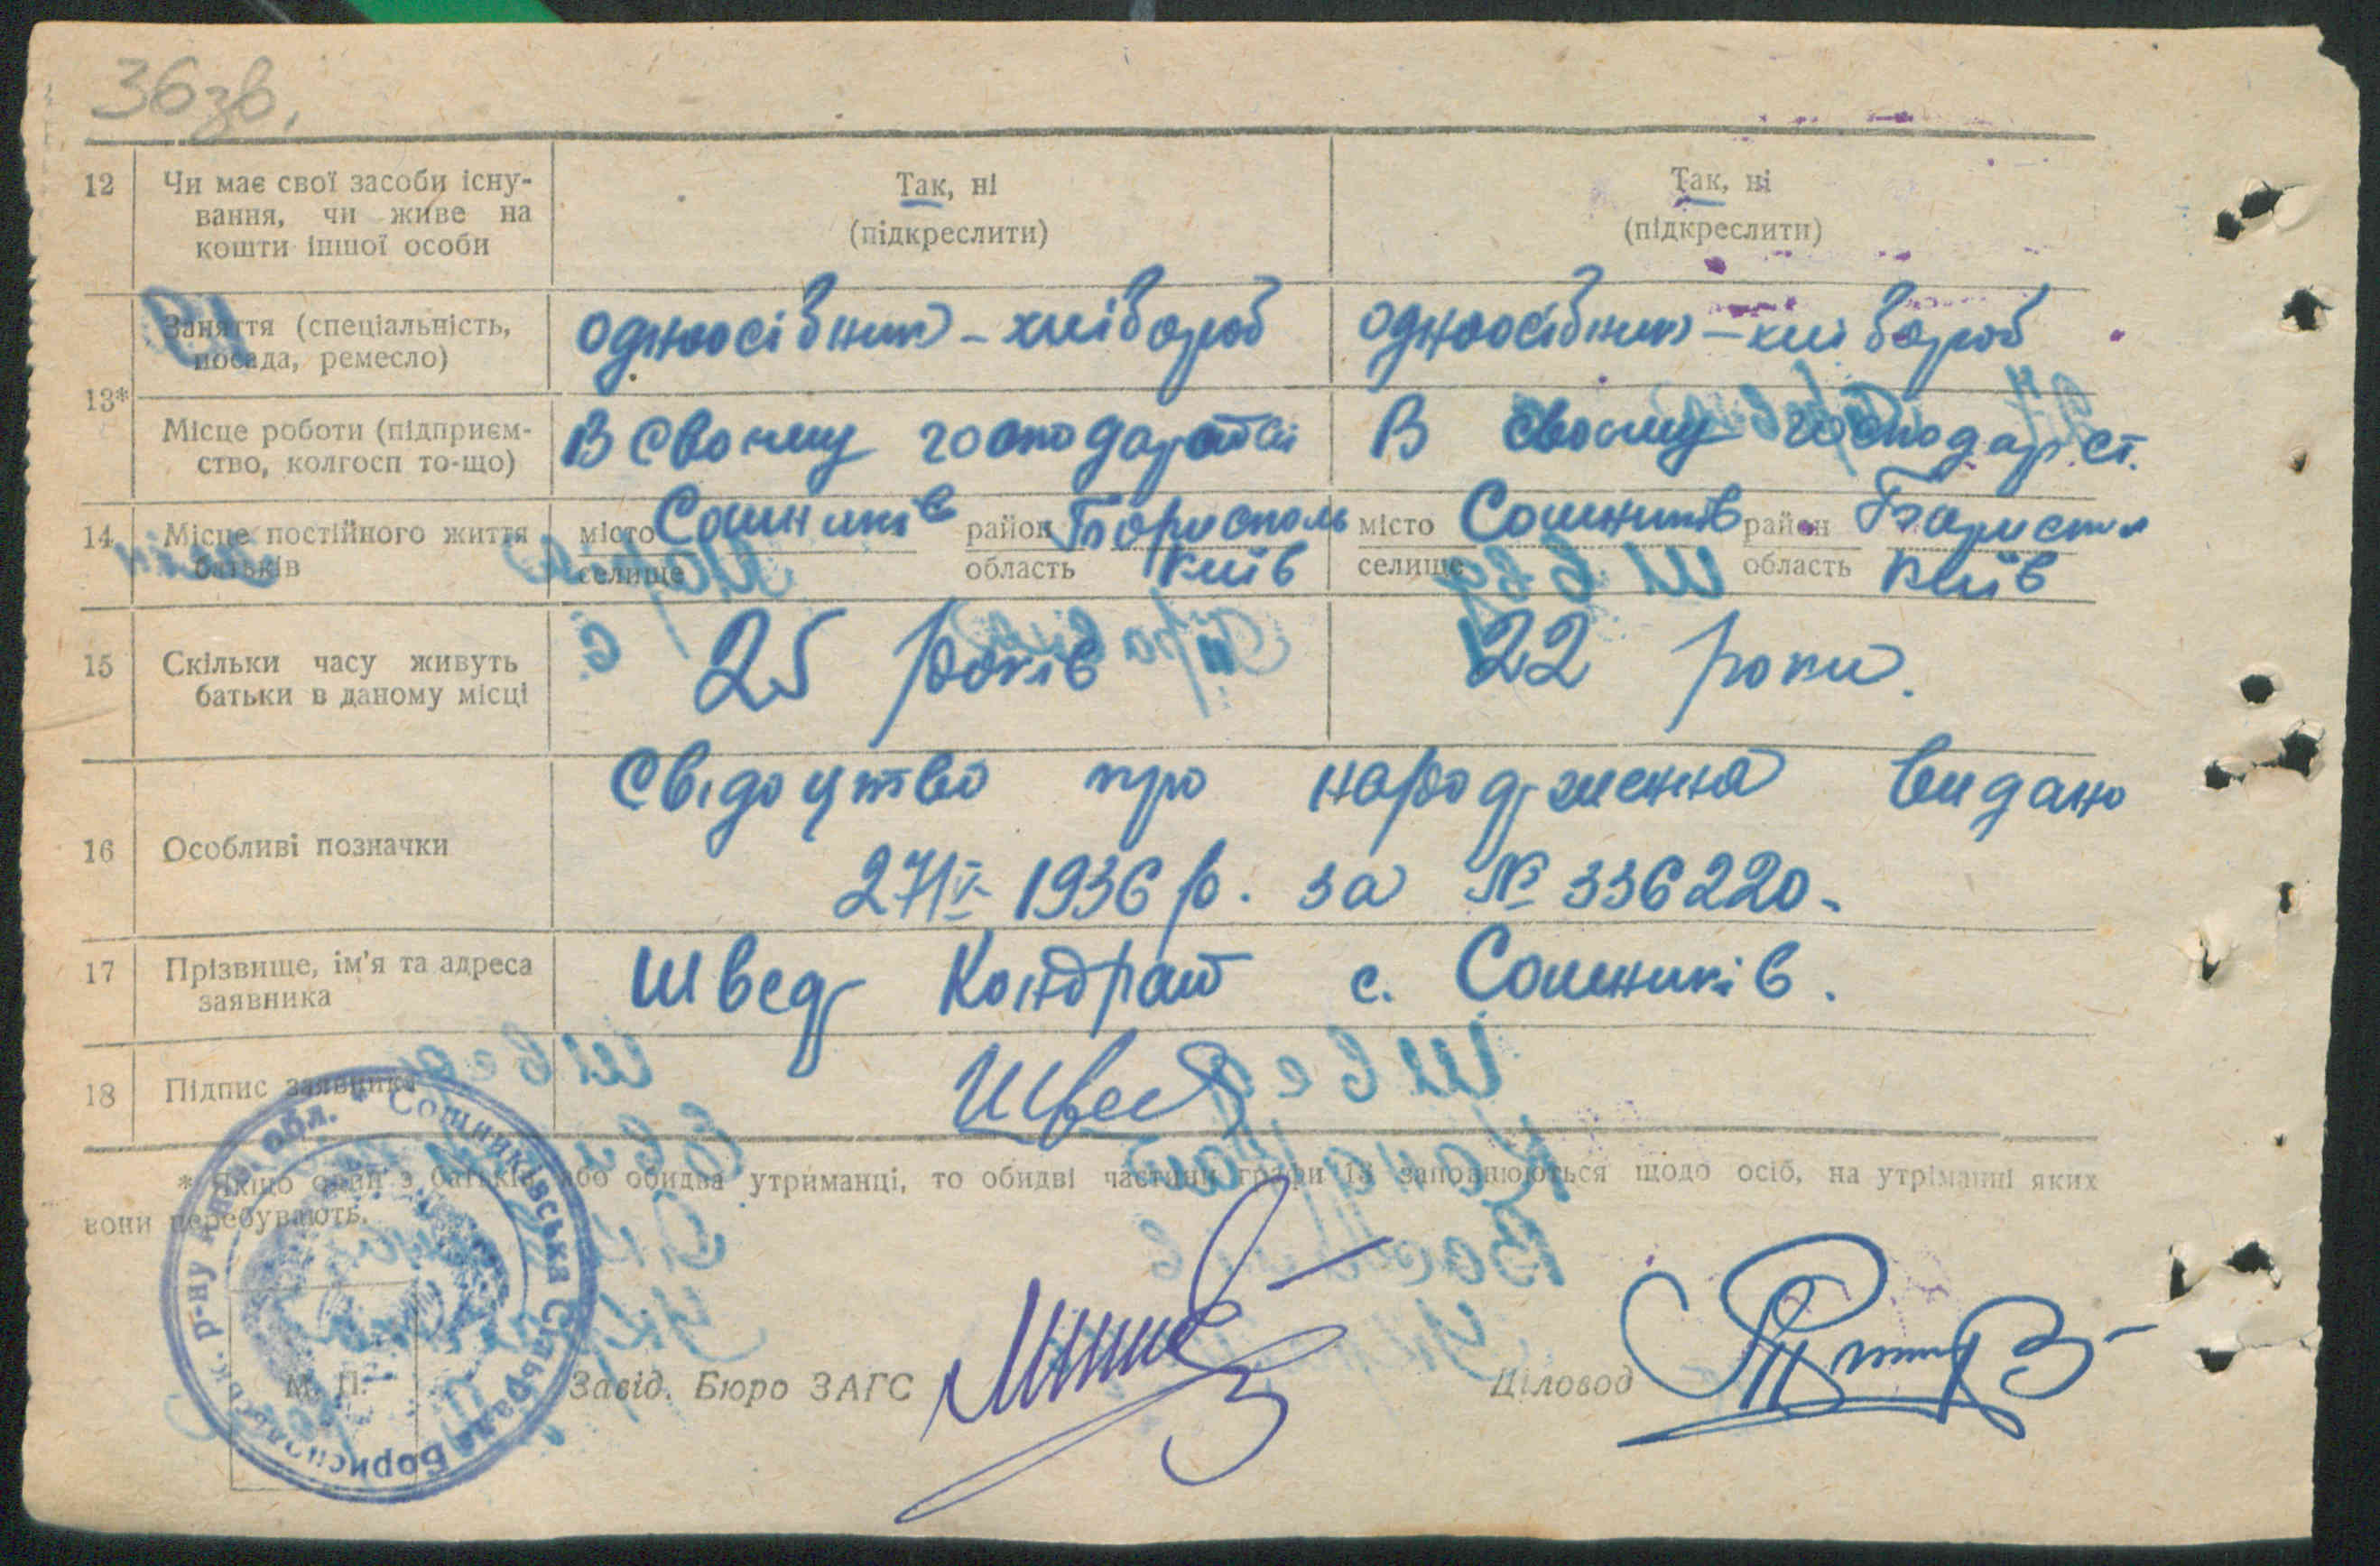 36 зв.
12 Чи має свої засоби існу-
вання, чи живе на
кошти іншої особи
Так, ні
(підкреслити)
Так, ні
(підкреслити)
13*
Заняття (спеціальність,
посада, ремесло)
одноосібник - хлібороб
одноосібник - хлібороб
Місце роботи (підприєм-
ство, колгосп то-що)
В своєму господарстві
В своєму господарст.
14 Місце постійного життя
батьків
місто Сошників район Бориспіль
селище область Київ
місто Сошників район Бориспол
селище область Київ
15 Скільки часу живуть
батьки в даному місці
25 років
22 роки.
16 Особливі позначки
Свідоцтво про народження видано
27/V- 1936 р. за № 336220.
17 Прізвище, ім'я та адреса
заявника
Швед Кондрат с. Сошників.
18 Підпис заявника
Швед
* Якщо один з батьків або обидва утриманці, то обидві частини графи 13 заповнюються щодо осіб, на утріманні яких
вони перебувають.
Сошниківська Сільрада Бориспільськ. р-ну обл.
М. П.
Завід. Бюро ЗАГС
Діловод